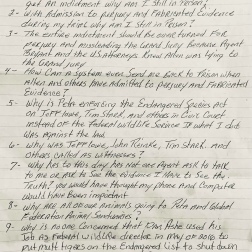 get an indictment why am I still in Prison?
2- With Admission to Perjury and Fabricated Evidence
during my trial why am I still in Prison?
3- The entire indictment should be over turned for
perjury and misleading the Grand Jury because Agent
Bryant and the US Attorneys knew Allen was lying to
the Grand Jury
4- How can a system even send me back to Prison when
Allen and others have admitted to perjury and Fabricated
Evidence?
5- Why is Peta enforcing the Endangered Species Act
on Jeff Lowe, Tim Stark, and others in Civil Court
instead of the Federal Wildlife Service if what I did
was against the law
6- Why was Jeff Lowe, John Reinke, Tim Stark, and
others called as witnesses?
7- Why has to this day has not one Agent ask to talk
to me or ask to see the evidence I have to see the
Truth? you would have thought my phone and computer
would have been inspected
8- Why are all of our animals going to Peta and Global
Federation Animal Sanctuaries?
9- Why is no one concerned that Dan Ashe used his
job as Federal Wildlife director in May of 2016 to
put the tigers on the Endangered List to shut down